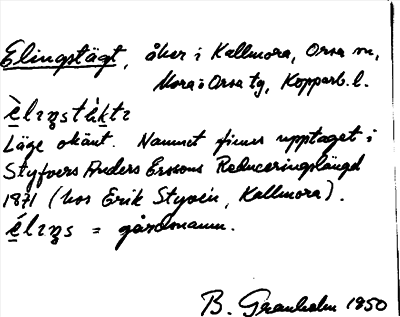 Elingstägt, åker i Kallmora, Orsa sn,
Mora o Orsa tg, Kopparb. l.
è̱lıŋstɛ́ktı
Läge okänt. Namnet finns upptaget i
Styfvers Anders Erssons Reduceringslängd
1871 (hos Erik Styvér, Kallmora).
é̱lıŋs = gårdsnamn.
B. Granholm 1950